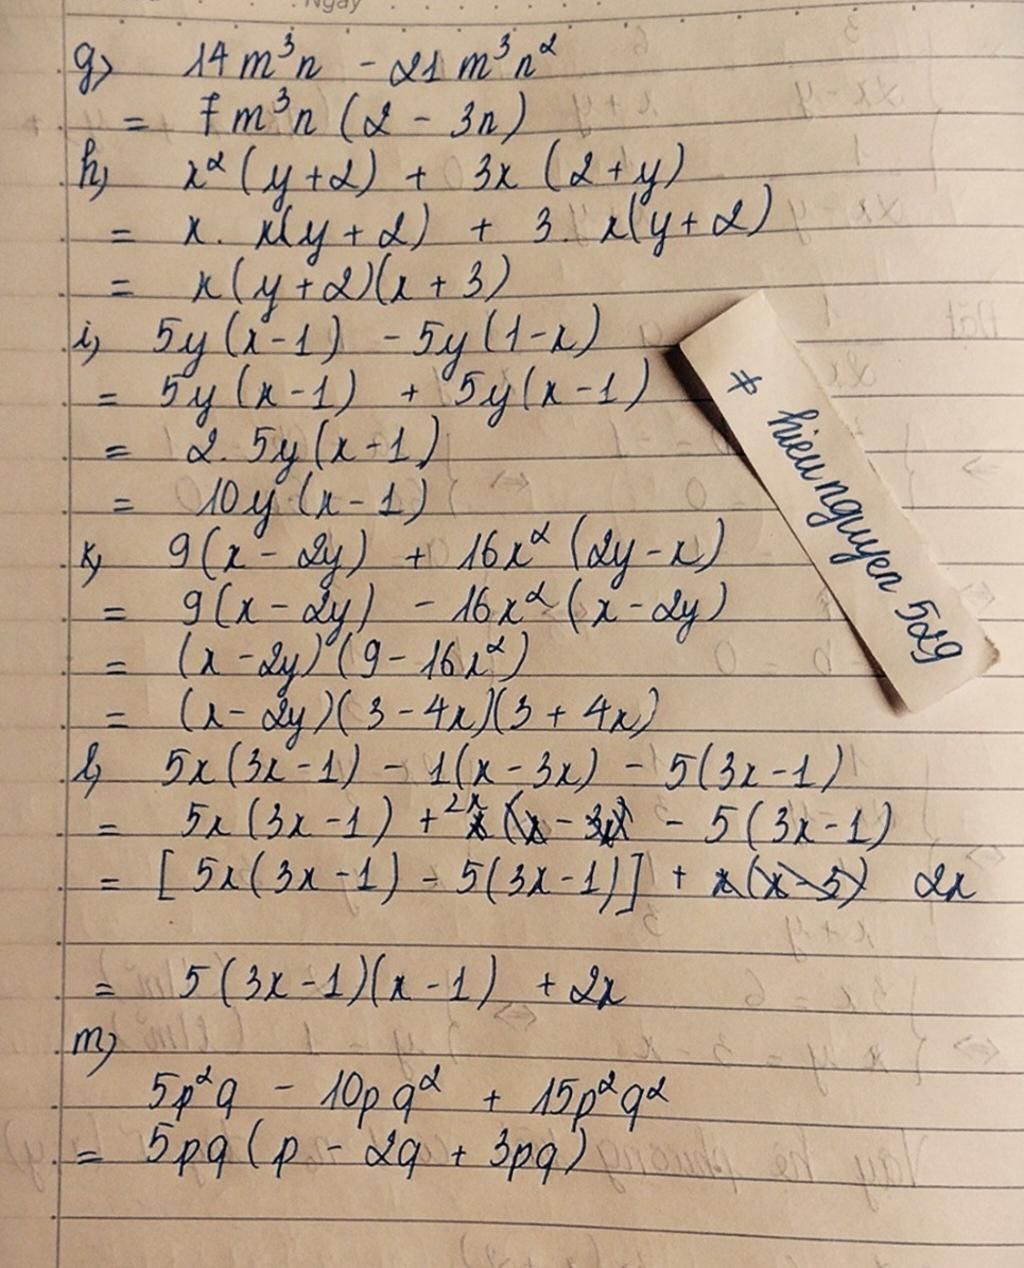 Ngày
g) 14m³n - 21m³n²
= 7m³n (2 - 3n)
h) x² (y+2) + 3x (2+y)
= x. x(y+2) + 3. x(y+2)
= x(y+2)(x+3)
i) 5y(x-1) - 5y(1-x)
= 5y(x-1) + 5y(x-1)
= 2. 5y(x-1)
= 10y(x-1)
k) 9(x - 2y) + 16x² (2y-x)
= 9(x-2y) - 16x² (x-2y)
= (x-2y) (9-16x²)
= (x-2y)(3-4x)(3+4x)
l) 5x(3x-1) - 1(x-3x) - 5(3x-1)
= 5x(3x-1) + 2x - 5(3x-1)
= [5x(3x-1) - 5(3x-1)] + 2x
= 5(3x-1)(x-1) + 2x
m)
5p²q - 10pq² + 15p²q²
= 5pq(p - 2q + 3pq)
* hieunguyen 529